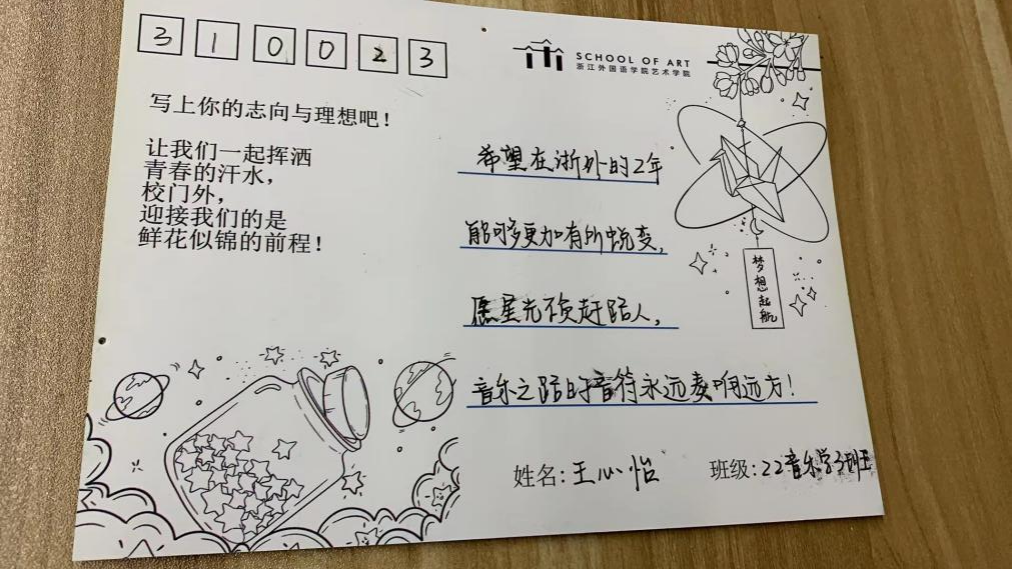 310023
SCHOOL OF ART
浙江外国语学院艺术学院
写上你的志向与理想吧！
让我们一起挥洒
青春的汗水，
校门外，
迎接我们的是
鲜花似锦的前程！
希望在浙外的2年
能够更加有所蜕变，
愿星光不负赶路人，
音乐之路的音符永远奏响远方！
梦想起航
姓名：王心怡
班级：22音乐学3班